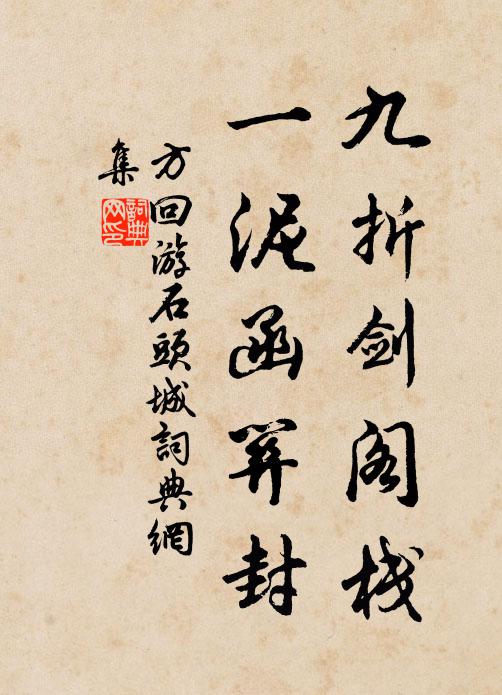 九折剑阁栈
一泥函关封
方回游石头城词典网
集
词典网印